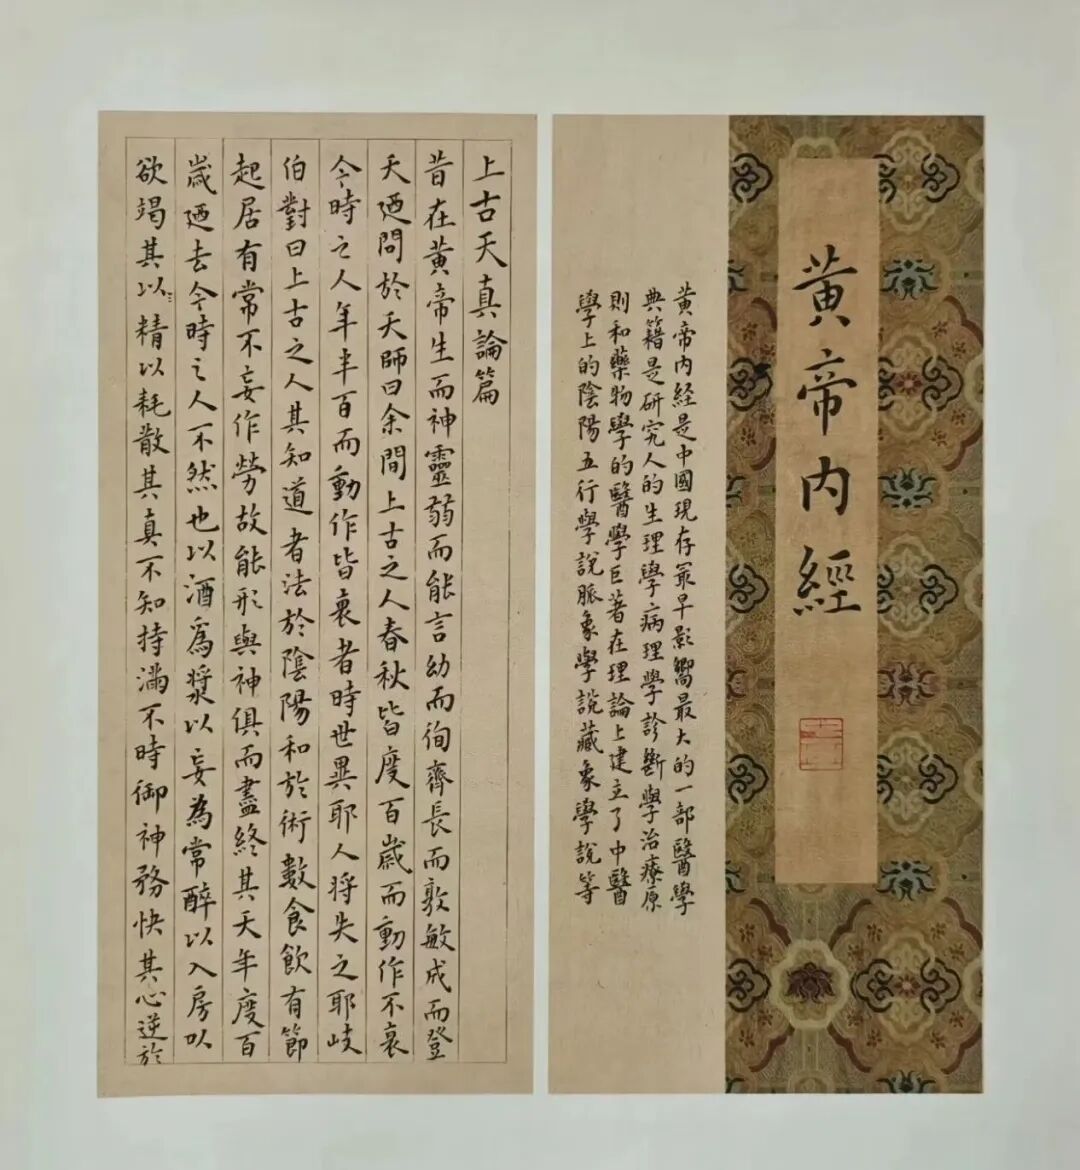 黄帝内經
黄帝内經是中國現存冣早影響最大的一部醫學
典籍是研究人的生理學病理學診斷學治療原
則和藥物學的醫學巨著在理論上建立了中醫
學上的陰陽五行學說脈象學說藏象學說等
上古天真論篇
昔在黄帝生而神靈弱而能言幼而徇齊長而敦敏成而登
天迺問於天師曰余間上古之人春秋皆度百歲而動作不衰
今時之人年半百而動作皆衰者時世異耶人將失之耶岐
伯對曰上古之人其知道者法於陰陽和於術數食飲有節
起居有常不妄作勞故能形與神俱而盡終其天年度百
歲迺去今時之人不然也以酒爲漿以妄為常醉以入房以
欲竭其以精以耗散其真不知持滿不時御神務快其心逆於